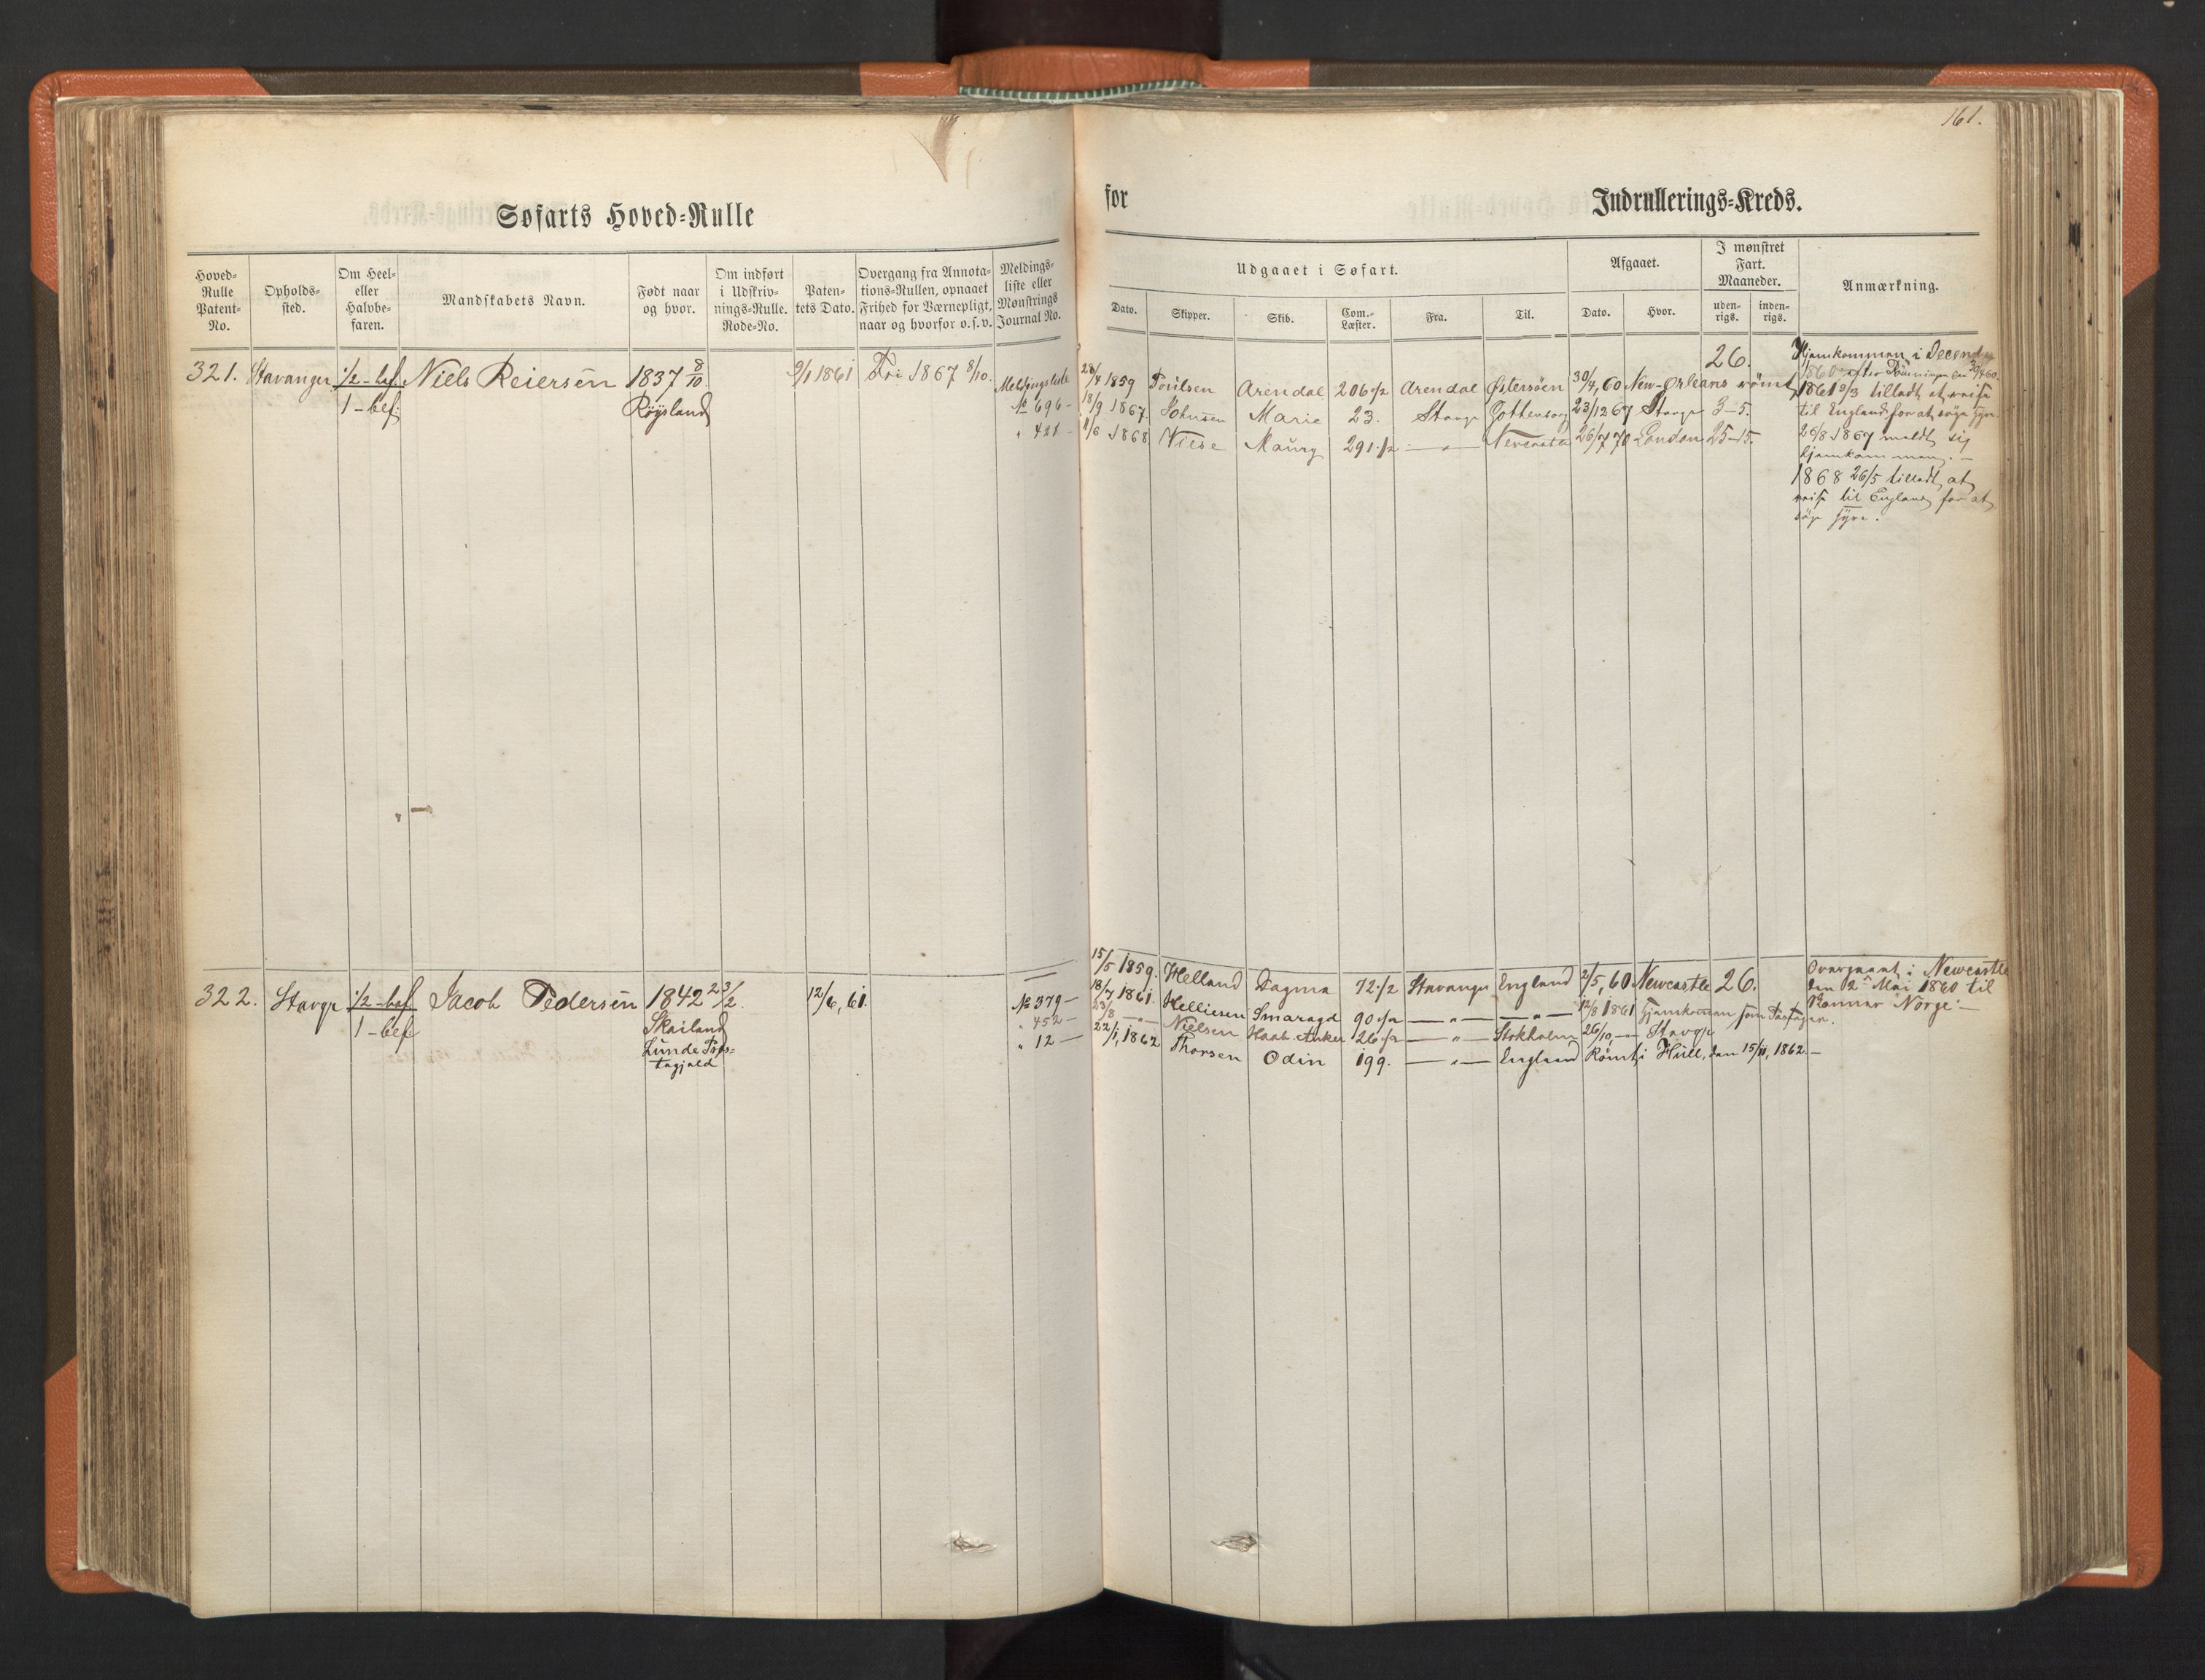 161.
Søfarts Hoved-Rulle
for Indrullerings-Kreds.
Hoved-Rulle Patent-No.
Opholds-sted.
Om Heel- eller Halvbe-faren.
Mandskabets Navn.
Født naar og hvor.
Om indført i Udskriv-nings-Rulle. Rode-No.
Paten-tets Dato.
Overgang fra Annota-tions-Rullen, opnaaet Frihed for Værnepligt, naar og hvorfor o.s.v.
Meldings-liste eller Mønstrings Journal No.
Udgaaet i Søfart.
Dato.
Skipper.
Skib.
Com.-Læster.
Fra.
Til.
Afgaaet.
Dato.
Hvor.
I mønstret Fart. Maaneder.
uden-rigs.
inden-rigs.
Anmærkning.
321. Stavanger 1/2-bef. Niels Reiersen 1837 8/10 9/1 1861 Fri 1867 8/10. Meldingsliste
1-bef. Röysland № 696-
" 421-
1859 Poulsen Arendal 206 1/2 Arendal Østersöen 30/4, 60 New-Orleans römt 26.
18/9 1867 Johnsen Marie 23. Stavgr Gothenborg 23/12 67 Stavgr 3-5.
1868 Niese Maury 291 1/2 -"- 26/7 70 London 25-15.
Hjemkommen i December
1860 efter Römningen den 30/4 60.
1861 9/3 tilladt at reise
til England for at söge Hyre.
26/8 1867 meldt sig
hjemkommen.-
1868 26/5 tilladt at
reise til England for at
söge Hyre.
322. Stavgr 1/2-bef. Jacob Pedersen 1842 23/2. 12/6, 61. № 379-
1-bef Skailand " 452-
Lunde Præs- " 12-
tegjeld
15/5 1859. Helland Dagma 72 1/2 Stavanger England 2/5, 60 Newcastle 26.
18/7 1861. Helliesen Smaragd 90 1/2 -"- -"- 12/8 1861 Hjemkommen som Passager.
23/8 -"- Nielsen Haab. Anker 26 1/2 -"- Stokholm 26/10 -"- Stavgr
22/1, 1862 Thorsen Odin 199. -"- England Römt i Hull, den 15/11, 1862.-
Overgaaet i Newcastle
den 2en Mai 1860 til
Norge.-